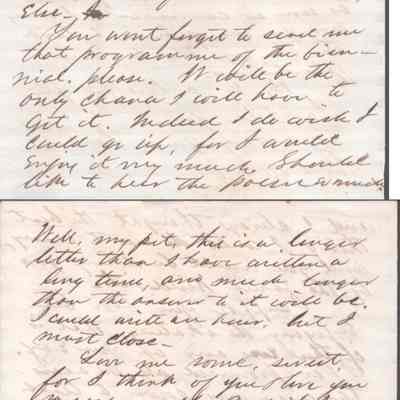 Else -
You wont forget to send me
that programme of the bien-
nial. please. It will be the
only chance I will have to
Get it. Indeed I do wish I
could go up, for I would
Enjoy it very much. Should
like to hear the poem so much.
Well, my pet, this is a longer
letter than I have written a
long time, and much longer
than the answer to it will be.
I could write an hour, but I
must close -
Love me some, sweet,
for I think of you & love you